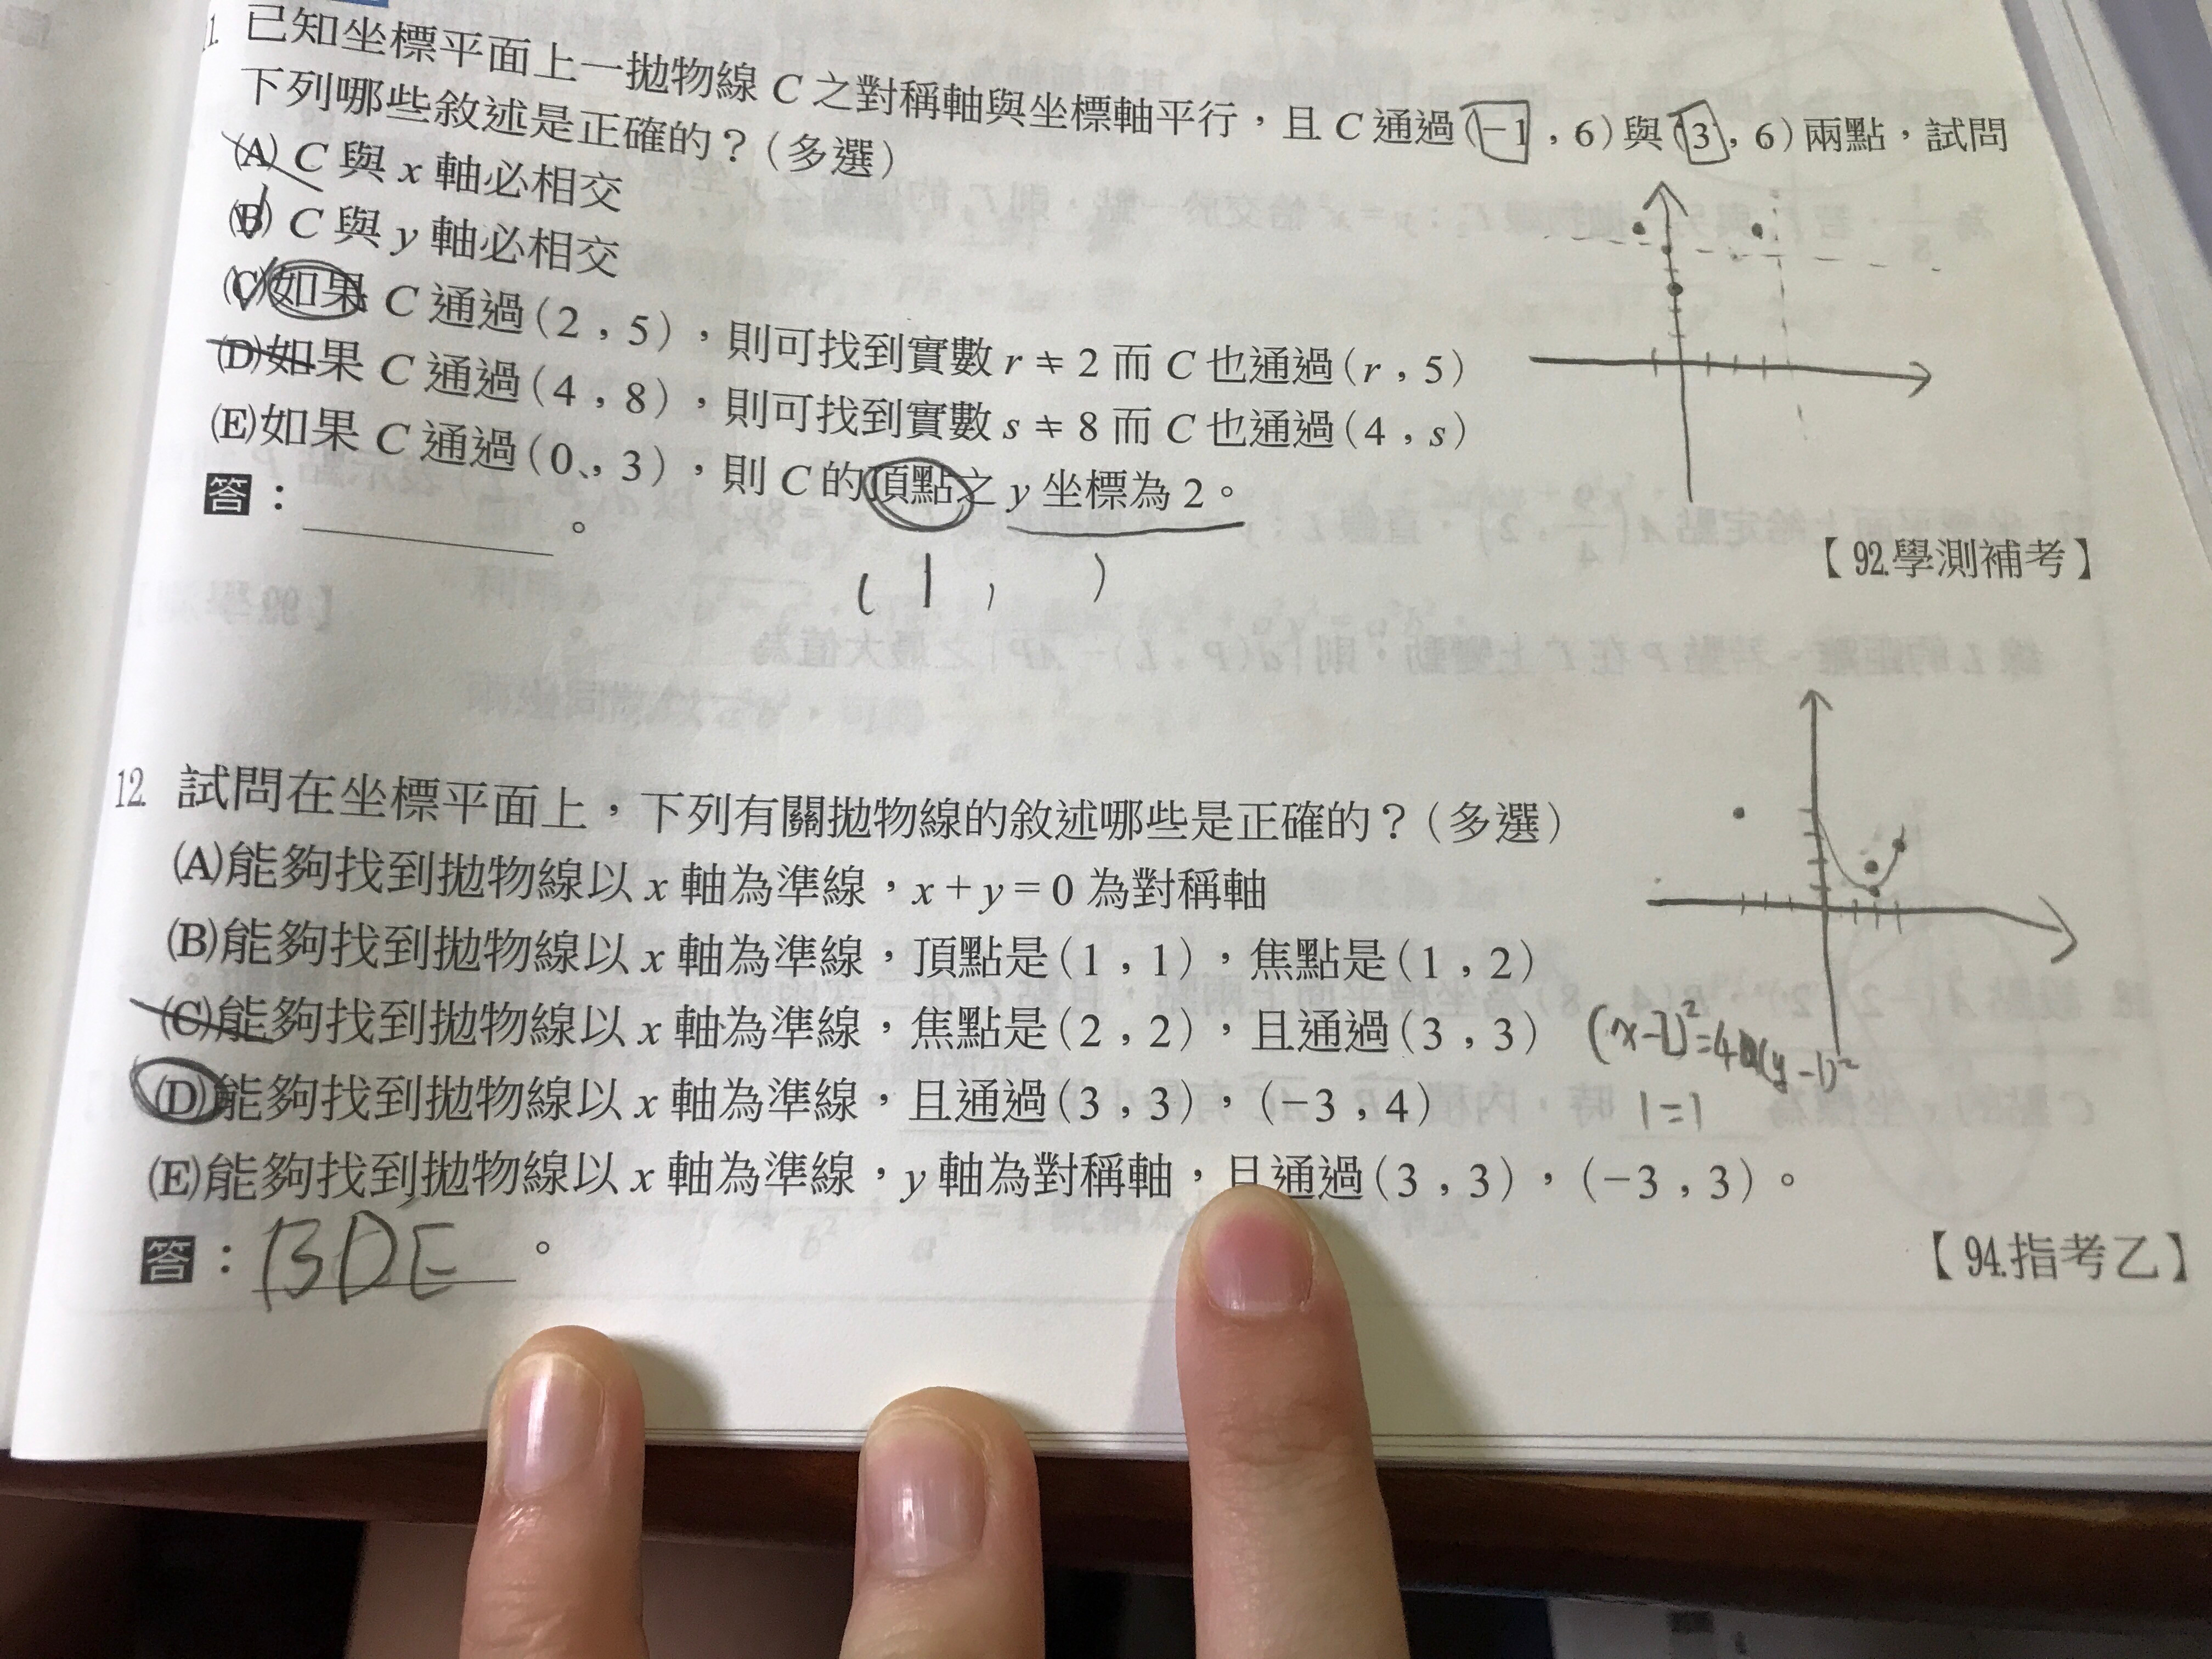 1. 已知坐標平面上一拋物線 C 之對稱軸與坐標軸平行，且 C 通過(−1 , 6)與(3 , 6)兩點，試問
下列哪些敘述是正確的？(多選)
(A) C 與 x 軸必相交
(B) C 與 y 軸必相交
(C)如果 C 通過(2 , 5)，則可找到實數 r ≠ 2 而 C 也通過(r , 5)
(D)如果 C 通過(4 , 8)，則可找到實數 s ≠ 8 而 C 也通過(4 , s)
(E)如果 C 通過(0 , 3)，則 C 的頂點之 y 坐標為 2。
答：
。
【92.學測補考】
( 1 , )
12. 試問在坐標平面上，下列有關拋物線的敘述哪些是正確的？(多選)
(A)能夠找到拋物線以 x 軸為準線，x + y = 0 為對稱軸
(B)能夠找到拋物線以 x 軸為準線，頂點是(1 , 1)，焦點是(1 , 2)
(C)能夠找到拋物線以 x 軸為準線，焦點是(2 , 2)，且通過(3 , 3)
(D)能夠找到拋物線以 x 軸為準線，且通過(3 , 3)，(−3 , 4)
1=1
(E)能夠找到拋物線以 x 軸為準線，y 軸為對稱軸，且通過(3 , 3)，(−3 , 3)。
答：BDE。
【94.指考乙】